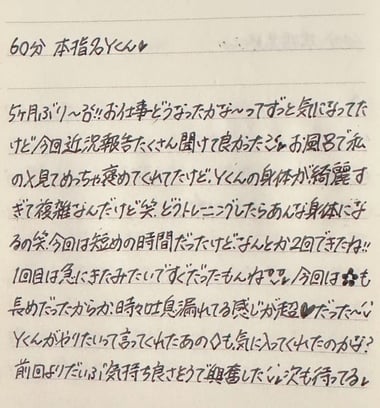 60分 本指名Yくん♥
5ヶ月ぶり〜!!お仕事どうなったかな〜ってずっと気になってた
けど今回近況報告たくさん聞けて良かった♡お風呂で私
の✕見てめっちゃ褒めてくれてたけど、Yくんの身体が綺麗す
ぎて複雑なんだけど笑、どうトレーニングしたらあんな身体にな
るの笑、今回は短めの時間だったけど、なんとか2回できたね!!
1回目は急にきたみたいですぐだったもんね 今回は✿も
長めだったからか、時々吐息漏れてる感じが超♥だった〜
Yくんがやりたいって言ってくれたあの◇も、気に入ってくれたのかな?
前回よりだいぶ気持ち良さそうで興奮した 次も待ってる♥